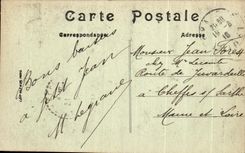 Carte Postale
Correspondance
Adresse
Bons baisers
à petit Jean
M Legrand
Monsieur Jean Forest
chez Mr Lecomte
Route de Juvardeil
à Cheffes s/ Sarthe
Maine et Loire